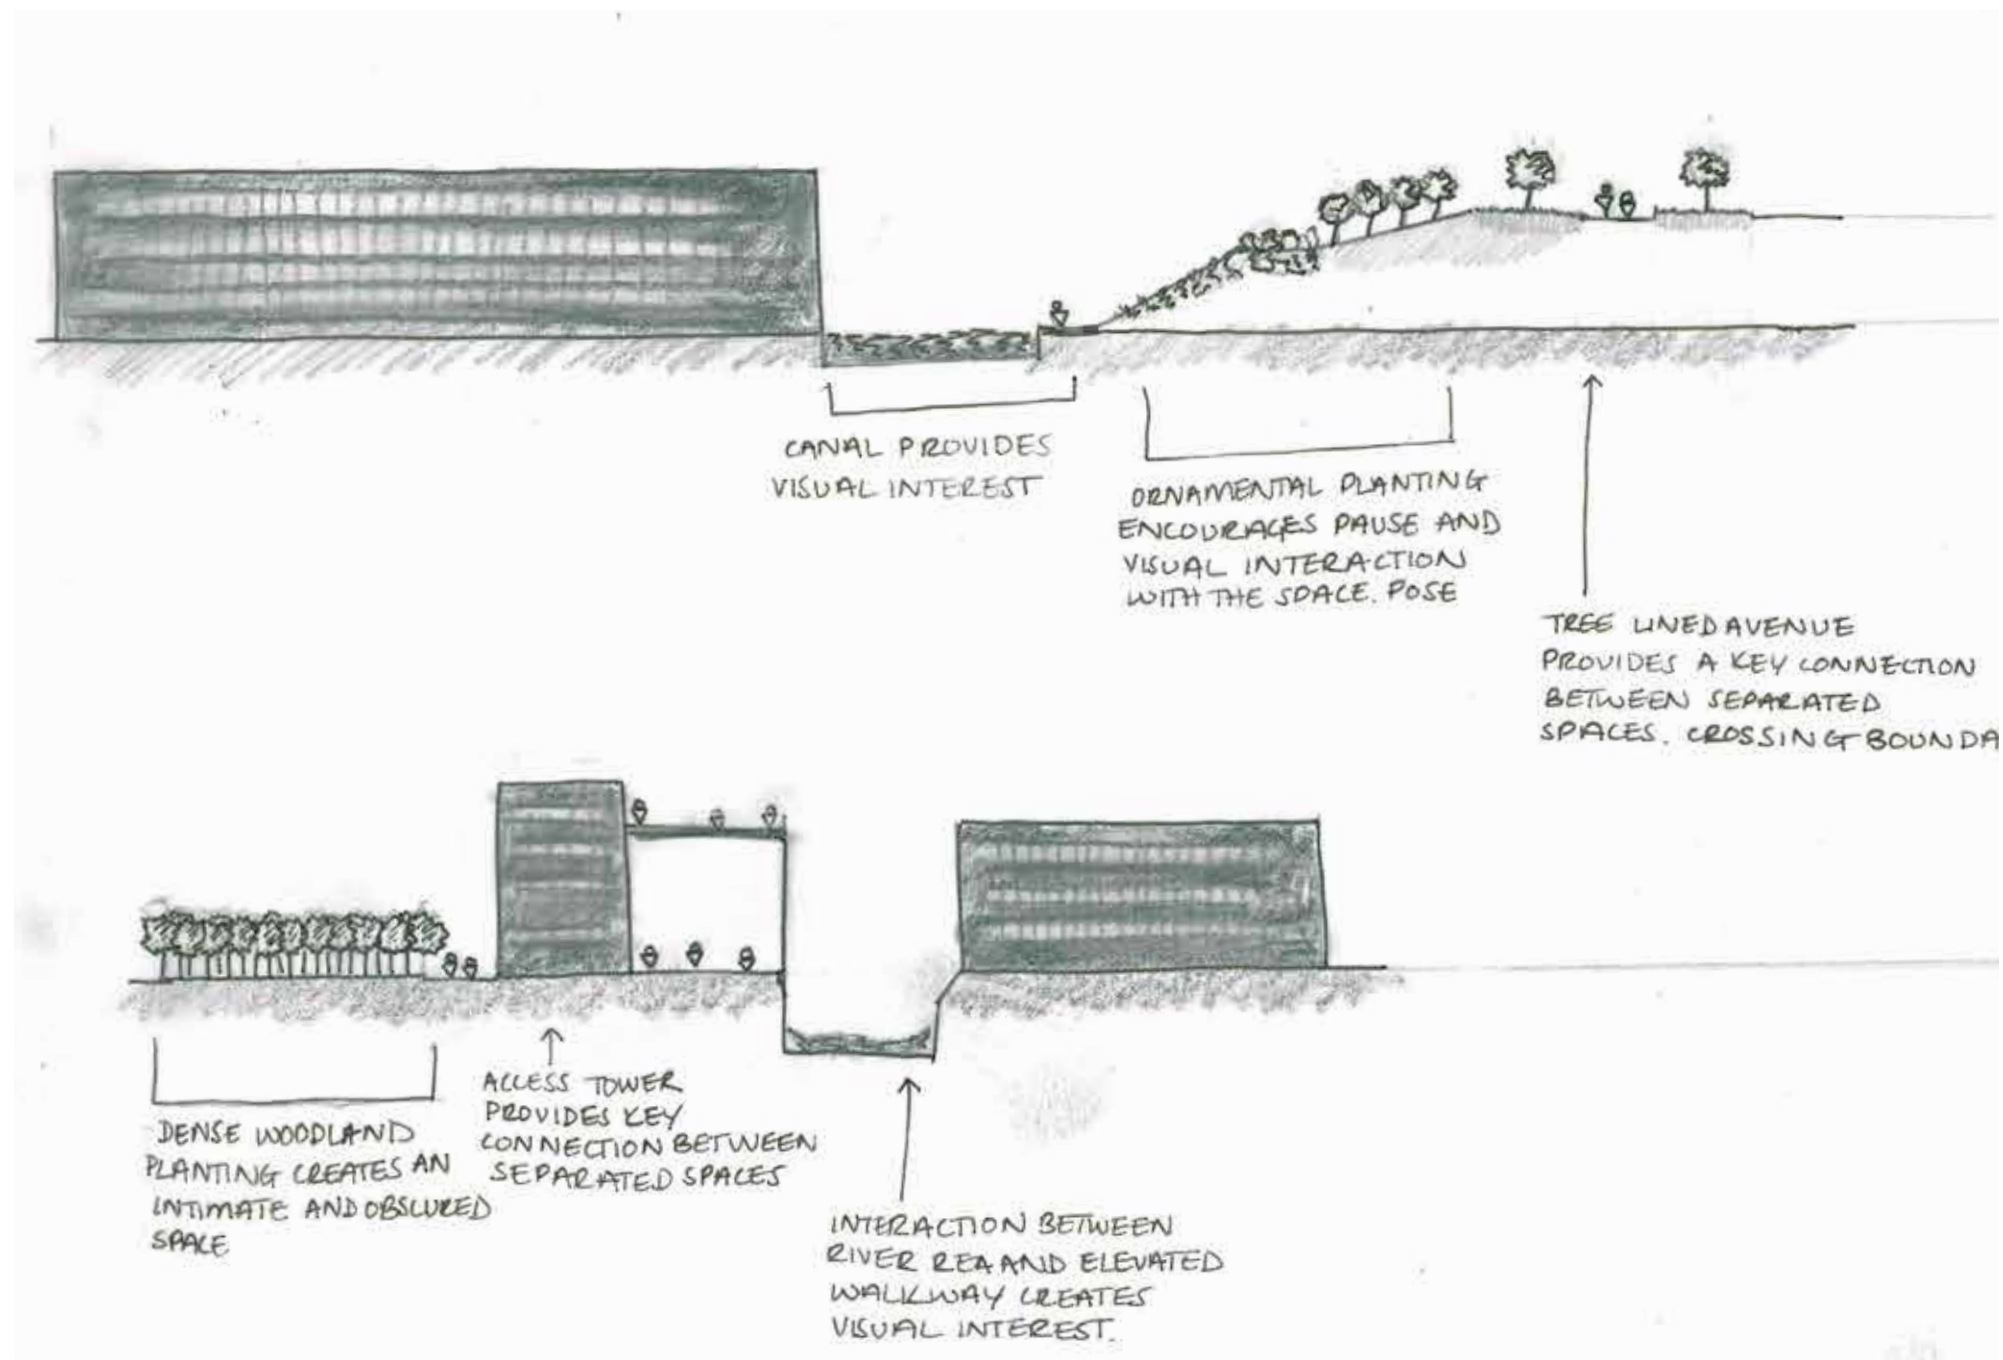 CANAL PROVIDES
VISUAL INTEREST
ORNAMENTAL PLANTING
ENCOURAGES PAUSE AND
VISUAL INTERACTION
WITH THE SPACE. POSE
TREE LINED AVENUE
PROVIDES A KEY CONNECTION
BETWEEN SEPARATED
SPACES. CROSSING BOUNDA
DENSE WOODLAND
PLANTING CREATES AN
INTIMATE AND OBSCURED
SPACE
ACCESS TOWER
PROVIDES KEY
CONNECTION BETWEEN
SEPARATED SPACES
INTERACTION BETWEEN
RIVER REA AND ELEVATED
WALKWAY CREATES
VISUAL INTEREST.